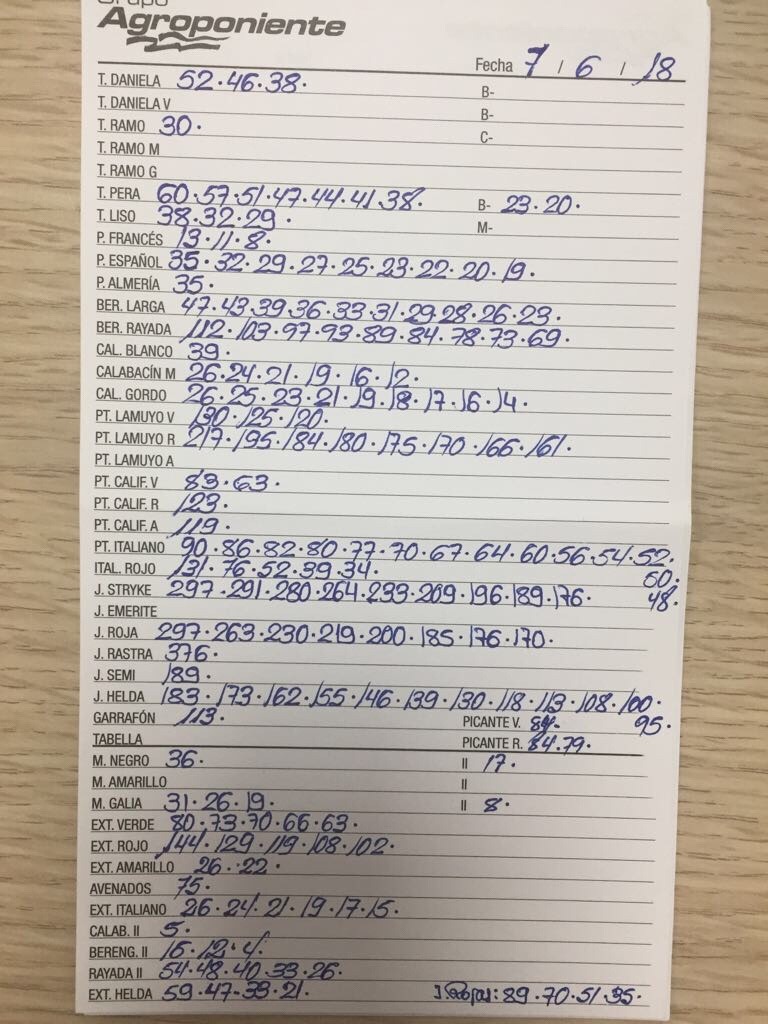 Grupo
Agroponiente
Fecha 7 / 6 / 18
T. DANIELA 52.46.38. B-
T. DANIELA V B-
T. RAMO 30. C-
T. RAMO M
T. RAMO G
T. PERA 60.57.51.47.44.41.38. B- 23.20.
T. LISO 38.32.29. M-
P. FRANCÉS 13.11.8.
P. ESPAÑOL 35.32.29.27.25.23.22.20.19.
P. ALMERÍA 35.
BER. LARGA 47.43.39.36.33.31.29.28.26.23.
BER. RAYADA 112.103.97.93.89.84.78.73.69.
CAL. BLANCO 39.
CALABACÍN M 26.24.21.19.16.12.
CAL. GORDO 26.25.23.21.19.18.17.16.14.
PT. LAMUYO V 130.125.120.
PT. LAMUYO R 217.195.184.180.175.170.166.161.
PT. LAMUYO A
PT. CALIF. V 83.63.
PT. CALIF. R 123.
PT. CALIF. A 119.
PT. ITALIANO 90.86.82.80.77.70.67.64.60.56.54.52.
ITAL. ROJO 131.76.52.39.34. 50.
J. STRYKE 297.291.280.264.233.209.196.189.176. 48.
J. EMERITE
J. ROJA 297.263.230.219.200.185.176.170.
J. RASTRA 376.
J. SEMI 189.
J. HELDA 183.173.162.155.146.139.130.118.113.108.100.
GARRAFÓN 113. PICANTE V. 84. 95.
TABELLA PICANTE R. 84.79.
M. NEGRO 36. II 17.
M. AMARILLO II
M. GALIA 31.26.19. II 8.
EXT. VERDE 80.73.70.66.63.
EXT. ROJO 144.129.119.108.102.
EXT. AMARILLO 26.22.
AVENADOS 75.
EXT. ITALIANO 26.24.21.19.17.15.
CALAB. II 5.
BERENG. II 15.12.4.
RAYADA II 54.48.40.33.26.
EXT. HELDA 59.47.33.21. 89.70.51.35.